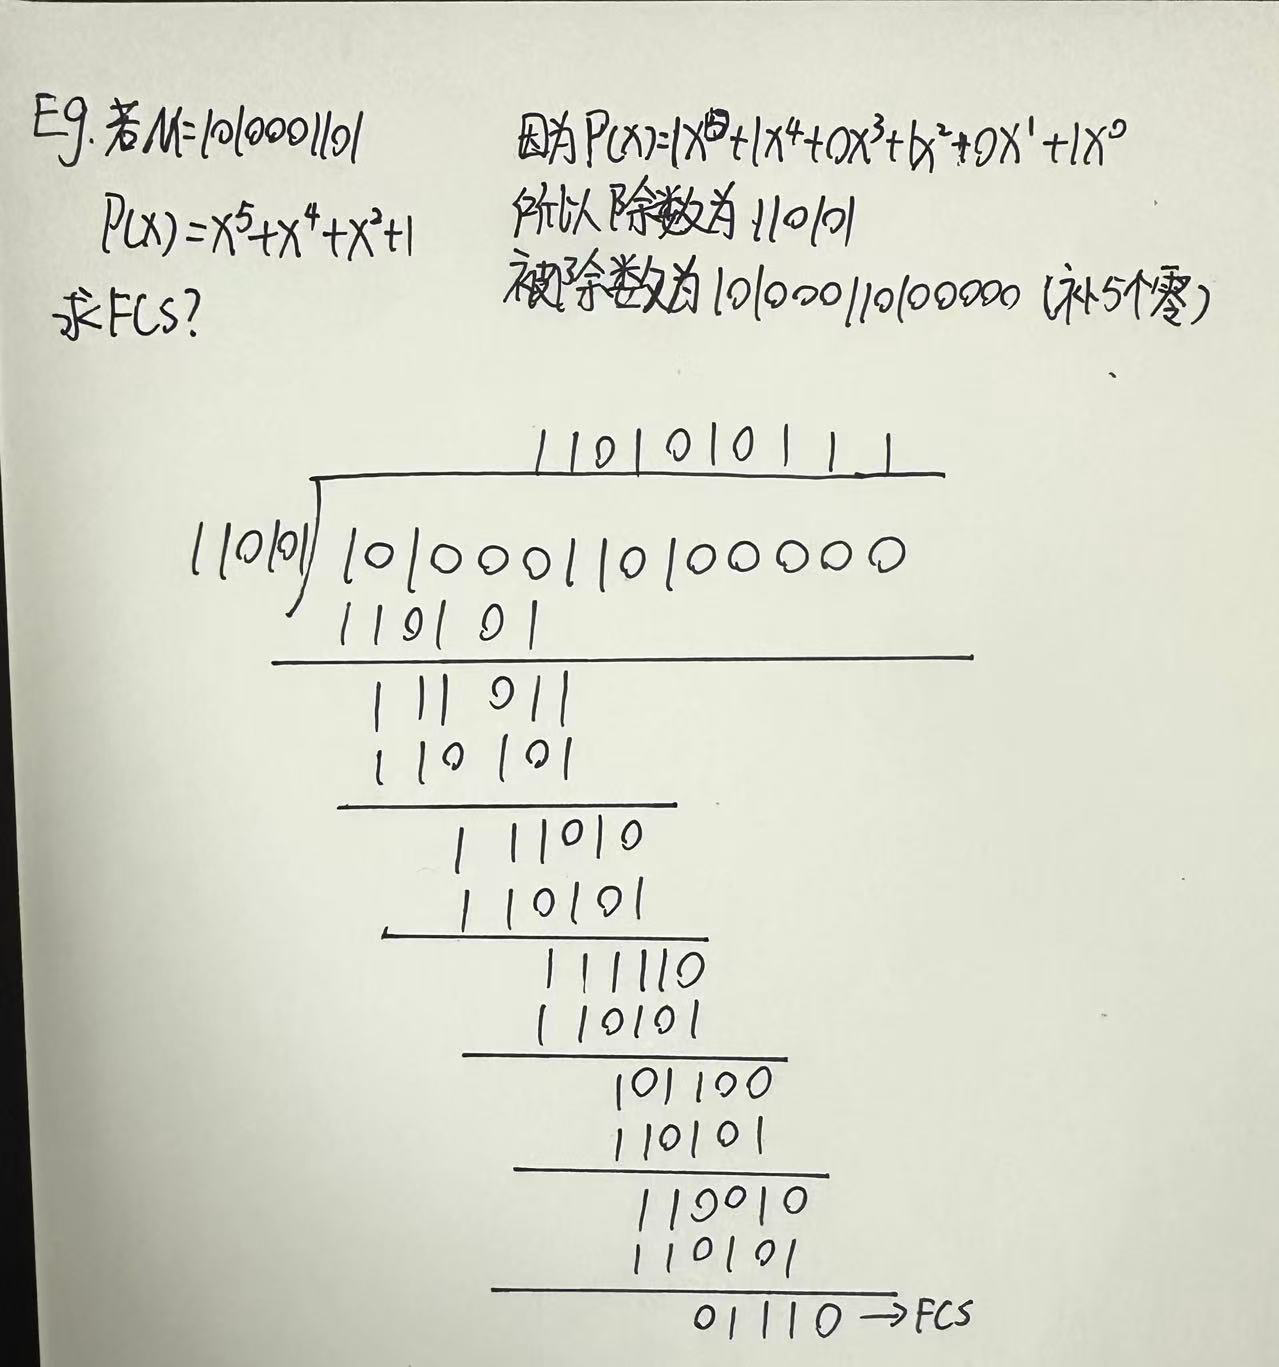 Eg. 若M=1010001101
P(X)=X⁵+X⁴+X²+1
求FCS?
因为P(X)=1X⁵+1X⁴+0X³+1X²+0X¹+1X⁰
所以除数为110101
被除数为101000110100000(补5个零)
1101010111
110101 101000110100000
110101
111011
110101
111010
110101
111110
110101
101100
110101
110010
110101
01110→FCS